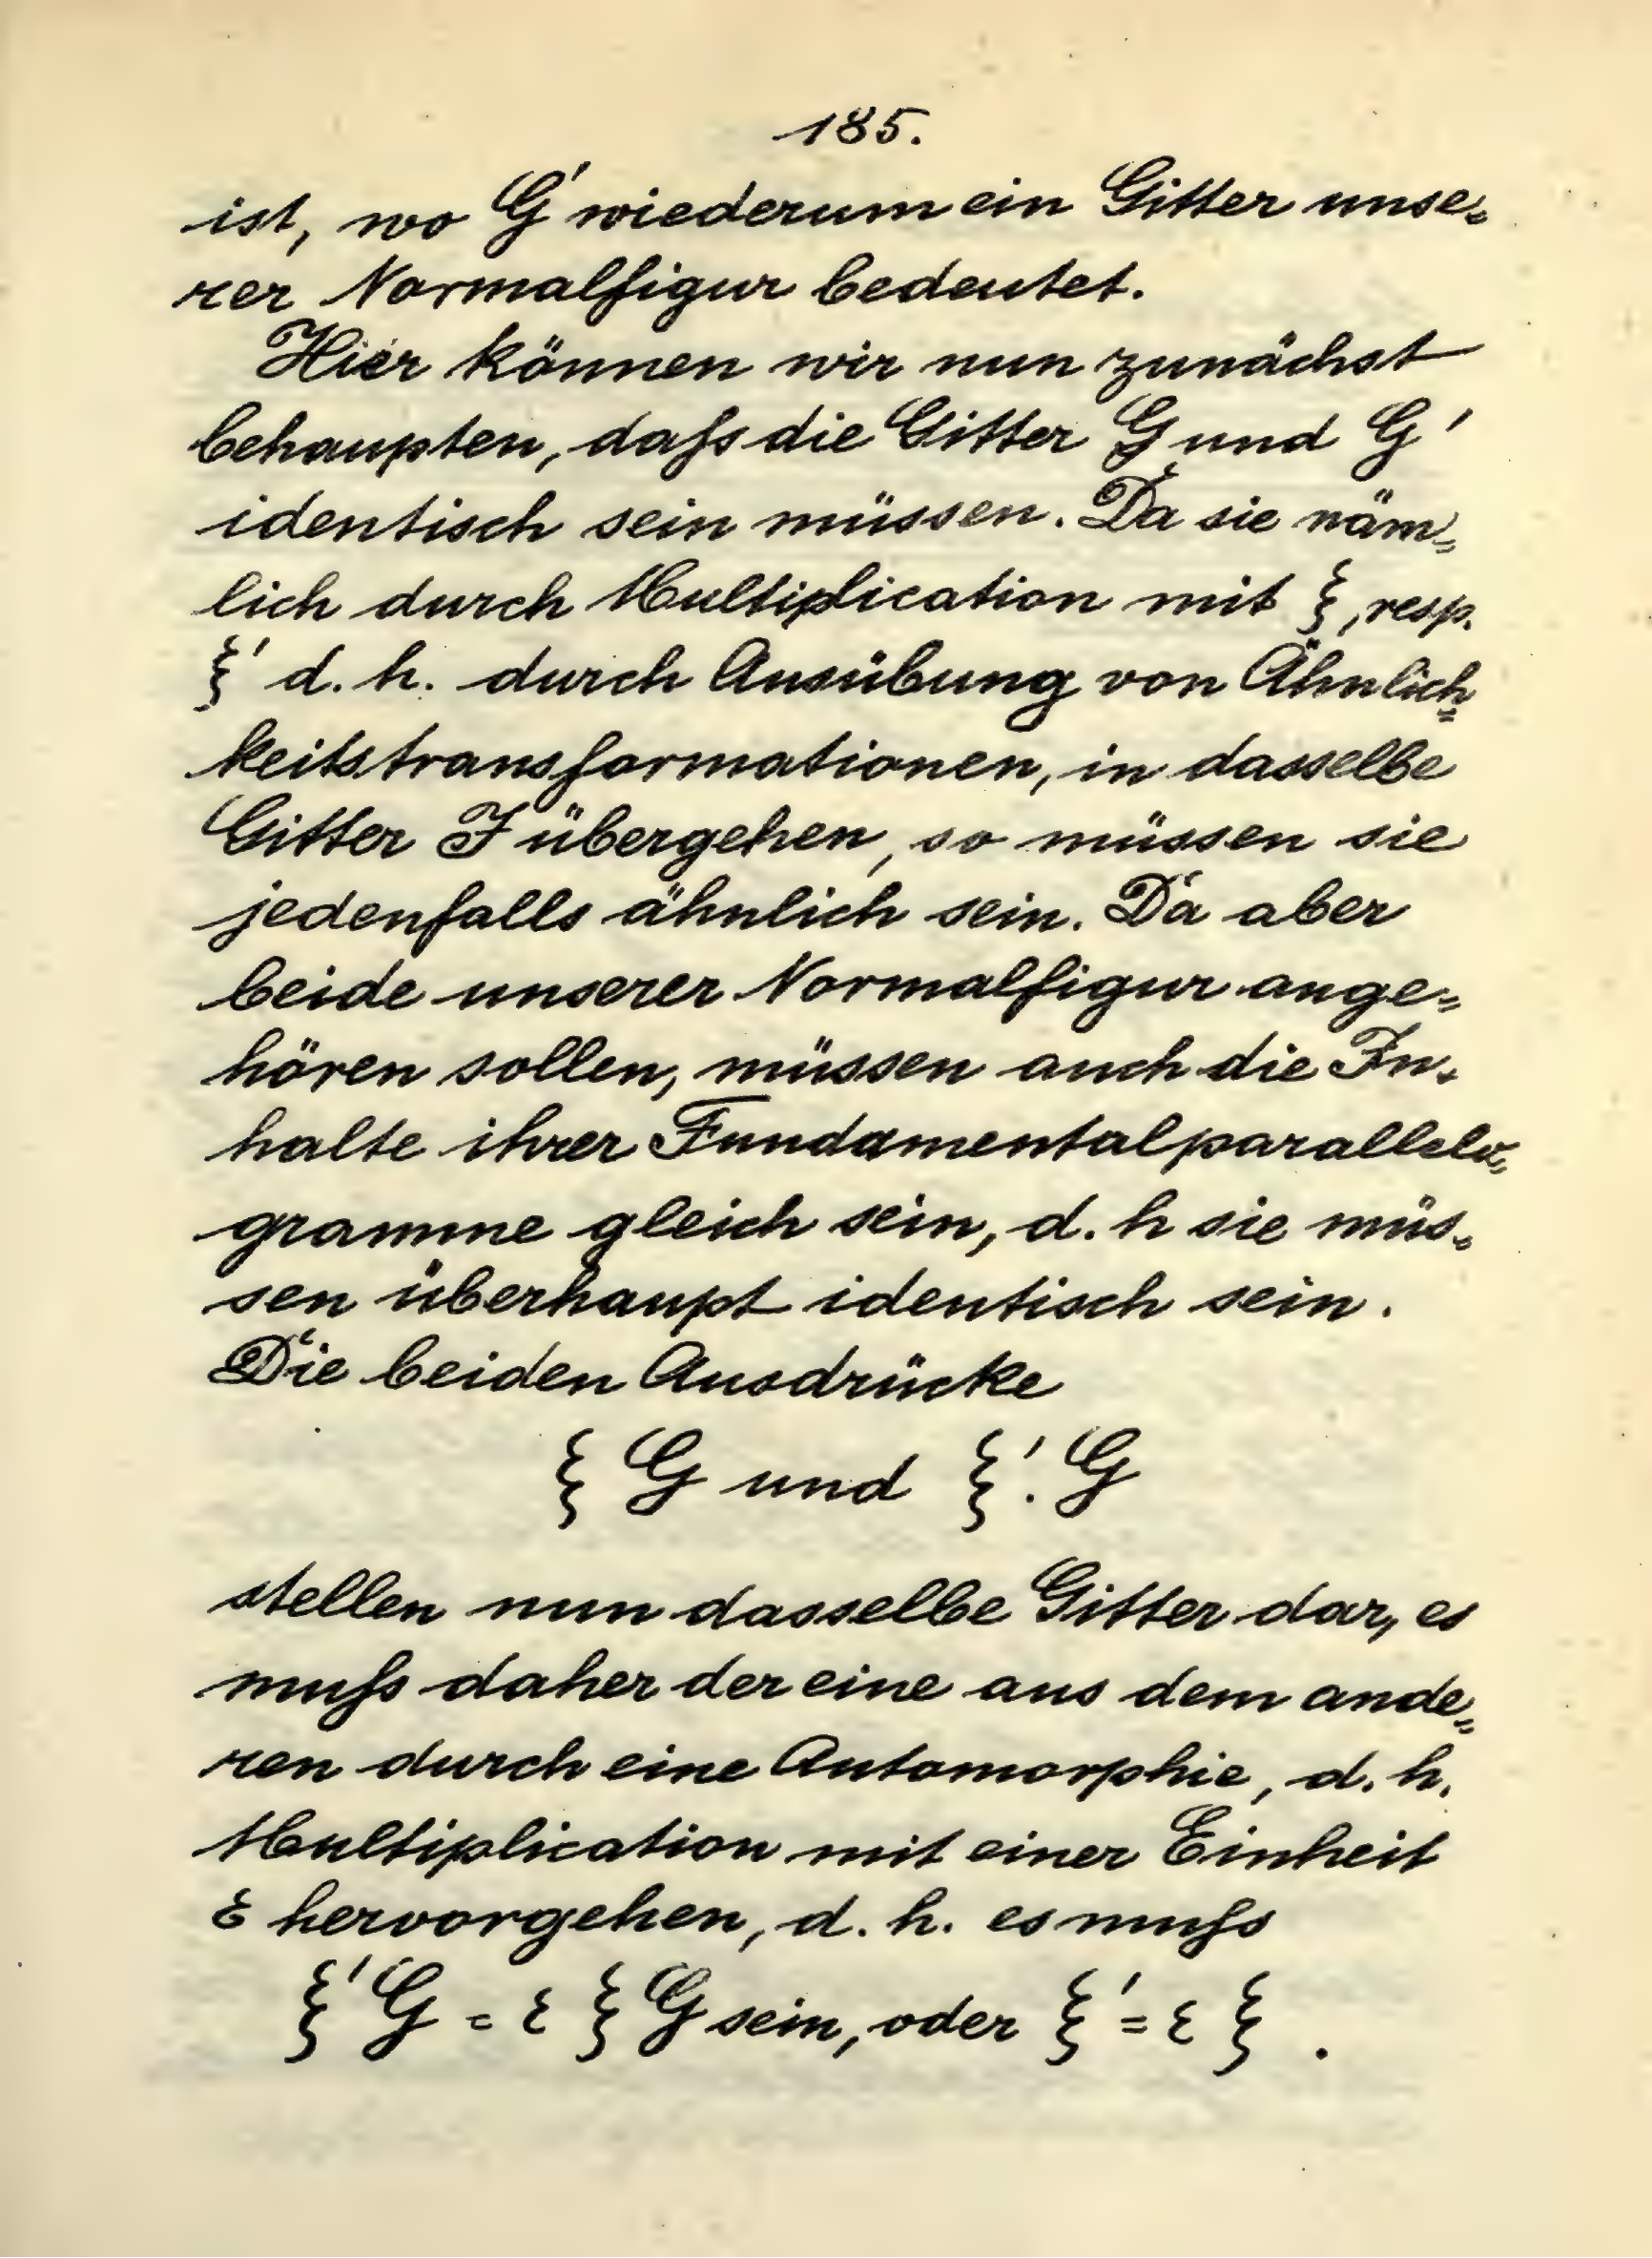 185.
ist, wo G' wiederum ein Gitter unse=
rer Normalfigur bedeutet.
Hier können wir nun zunächst
behaupten, daſs die Gitter G und G'
identisch sein müssen. Da sie näm=
lich durch Multiplication mit ξ, resp.
ξ' d. h. durch Ausübung von Ähnlich=
keitstransformationen, in dasselbe
Gitter J übergehen, so müssen sie
jedenfalls ähnlich sein. Da aber
beide unserer Normalfigur ange=
hören sollen, müssen auch die In=
halte ihrer Fundamentalparallelo=
gramme gleich sein, d. h sie müs=
sen überhaupt identisch sein.
Die beiden Ausdrücke
ξ G und ξ'. G
stellen nun dasselbe Gitter dar, es
muſs daher der eine aus dem ande=
ren durch eine Automorphie, d. h.
Multiplication mit einer Einheit
ε hervorgehen, d. h. es muſs
ξ' G = ε ξ G sein, oder ξ' = ε ξ .